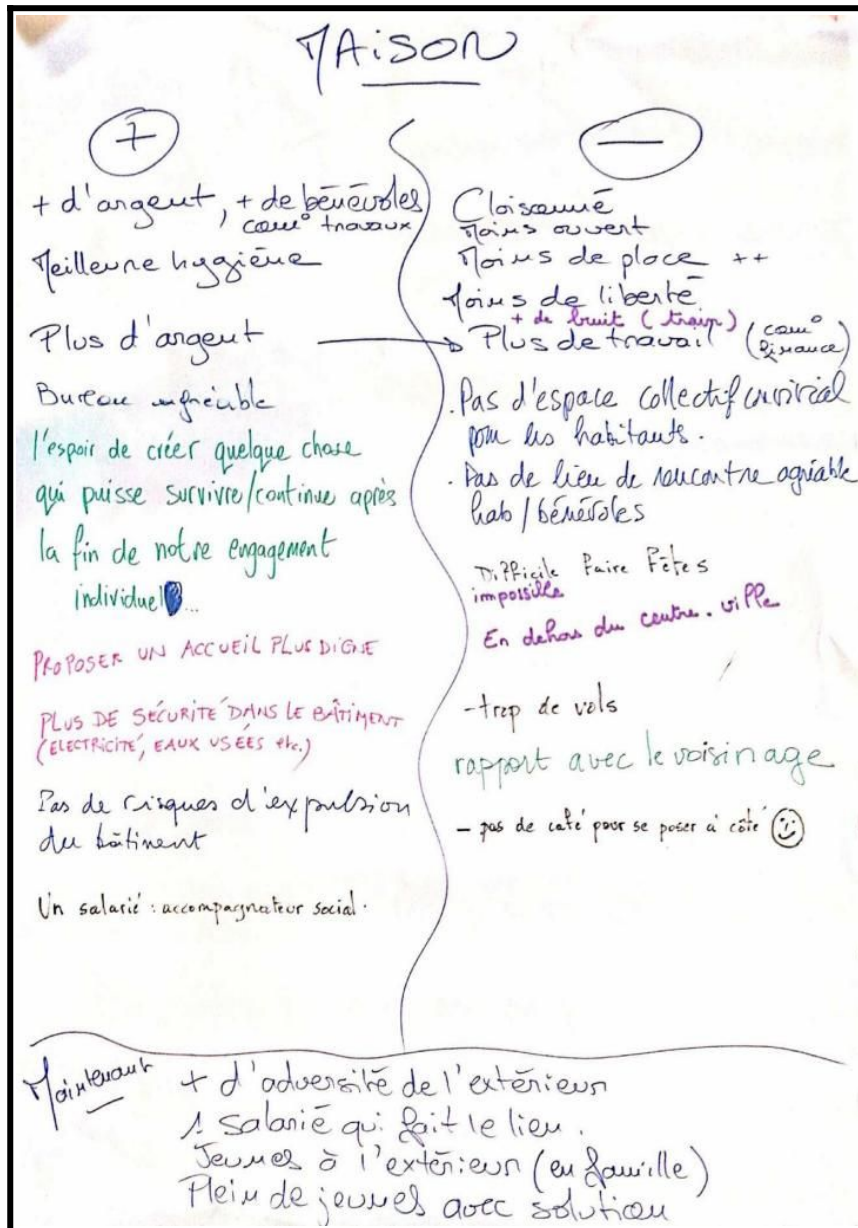 MAISON
+
+ d'argent, + de bénévoles
com° travaux
Meilleure hygiène
Plus d'argent
Bureau agréable
l'espoir de créer quelque chose
qui puisse survivre/continue après
la fin de notre engagement
individuel...
PROPOSER UN ACCUEIL PLUS DIGNE
PLUS DE SÉCURITÉ DANS LE BÂTIMENT
(ELECTRICITÉ, EAUX USÉES etc.)
Pas de risques d'expulsion
du bâtiment
Un salarié : accompagnateur social.
—
Cloisonné
Moins ouvert
Moins de place ++
Moins de liberté
+ de bruit (train)
Plus de travail (com°
finance)
. Pas d'espace collectif convivial
pour les habitants.
. Pas de lieu de rencontre agréable
hab/bénévoles
Difficile Faire Fêtes
impossible
En dehors du centre-ville
- trop de vols
rapport avec le voisinage
- pas de café pour se poser à côté
Maintenant
+ d'adversité de l'extérieur
1 salarié qui fait le lien.
Jeunes à l'extérieur (en famille)
Plein de jeunes avec solution